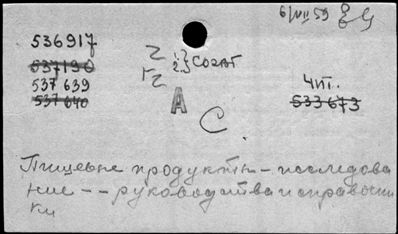 6/VII 59
536917
537190
537639
537640
1.} СОГАТ
2.}
А
С.
Чит.
533673
Пищевые продукты - исследова
ние -- руководства и справочни
ки